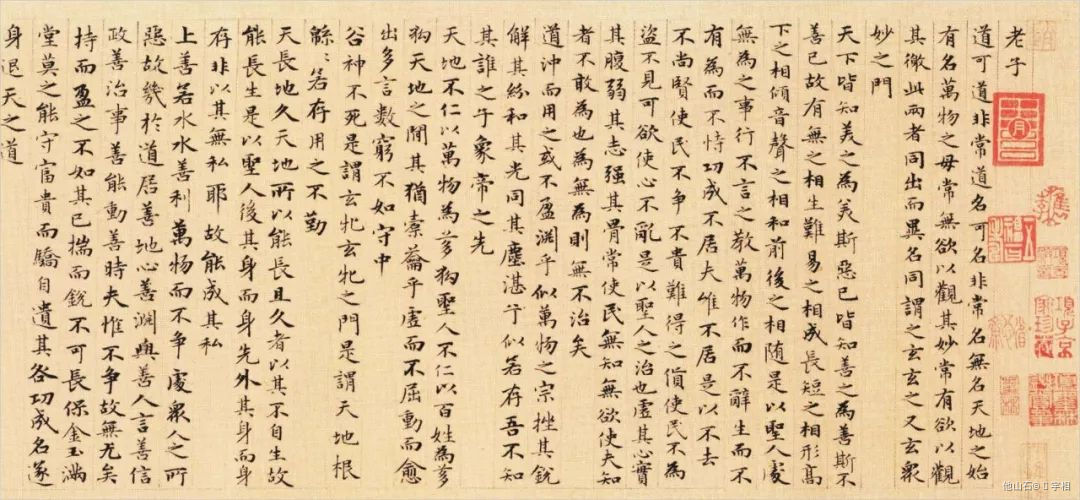 老子
道可道非常道名可名非常名無名天地之始
有名萬物之母常無欲以觀其妙常有欲以觀
其徼此兩者同出而異名同謂之玄玄之又玄眾
妙之門
天下皆知美之為美斯惡已皆知善之為善斯不
善已故有無之相生難易之相成長短之相形高
下之相傾音聲之相和前後之相随是以聖人處
無為之事行不言之教萬物作而不辭生而不
有為而不恃功成不居夫惟不居是以不去
不尚賢使民不争不貴難得之貨使民不為
盜不見可欲使心不亂是以聖人之治也虛其心實
其腹弱其志强其骨常使民無知無欲使夫知
者不敢為也為無為則無不治矣
道沖而用之或不盈淵乎似萬物之宗挫其銳
解其紛和其光同其塵湛乎似若存吾不知
其誰之子象帝之先
天地不仁以萬物為芻狗聖人不仁以百姓為芻
狗天地之間其猶橐籥乎虛而不屈動而愈
出多言數窮不如守中
谷神不死是謂玄牝玄牝之門是謂天地根
緜〻若存用之不勤
天長地久天地所以能長且久者以其不自生故
能長生是以聖人後其身而身先外其身而身
存非以其無私耶故能成其私
上善若水水善利萬物而不争處眾人之所
惡故幾於道居善地心善淵與善人言善信
政善治事善能動善時夫惟不争故無尤矣
持而盈之不如其已揣而銳不可長保金玉滿
堂莫之能守富貴而驕自遺其咎功成名遂
身退天之道